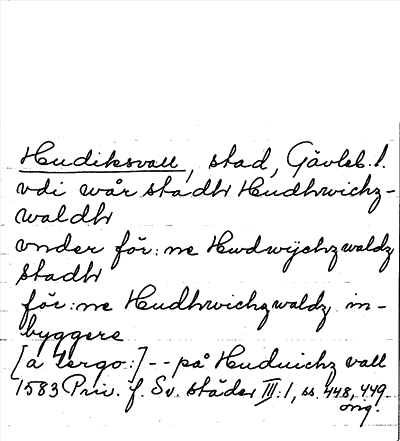 Hudiksvall, stad, Gävleb. l.
vdi wår stadh Hudhwichz-
waldh
vnder för:ne Hwdwijchzwaldz
stadh
för:ne Hudhwichzwaldz in-
byggere
[a tergo:] -- på Huduichz vall
1583 Priv. f. Sv. städer III:1, ss. 448, 449.
orig.